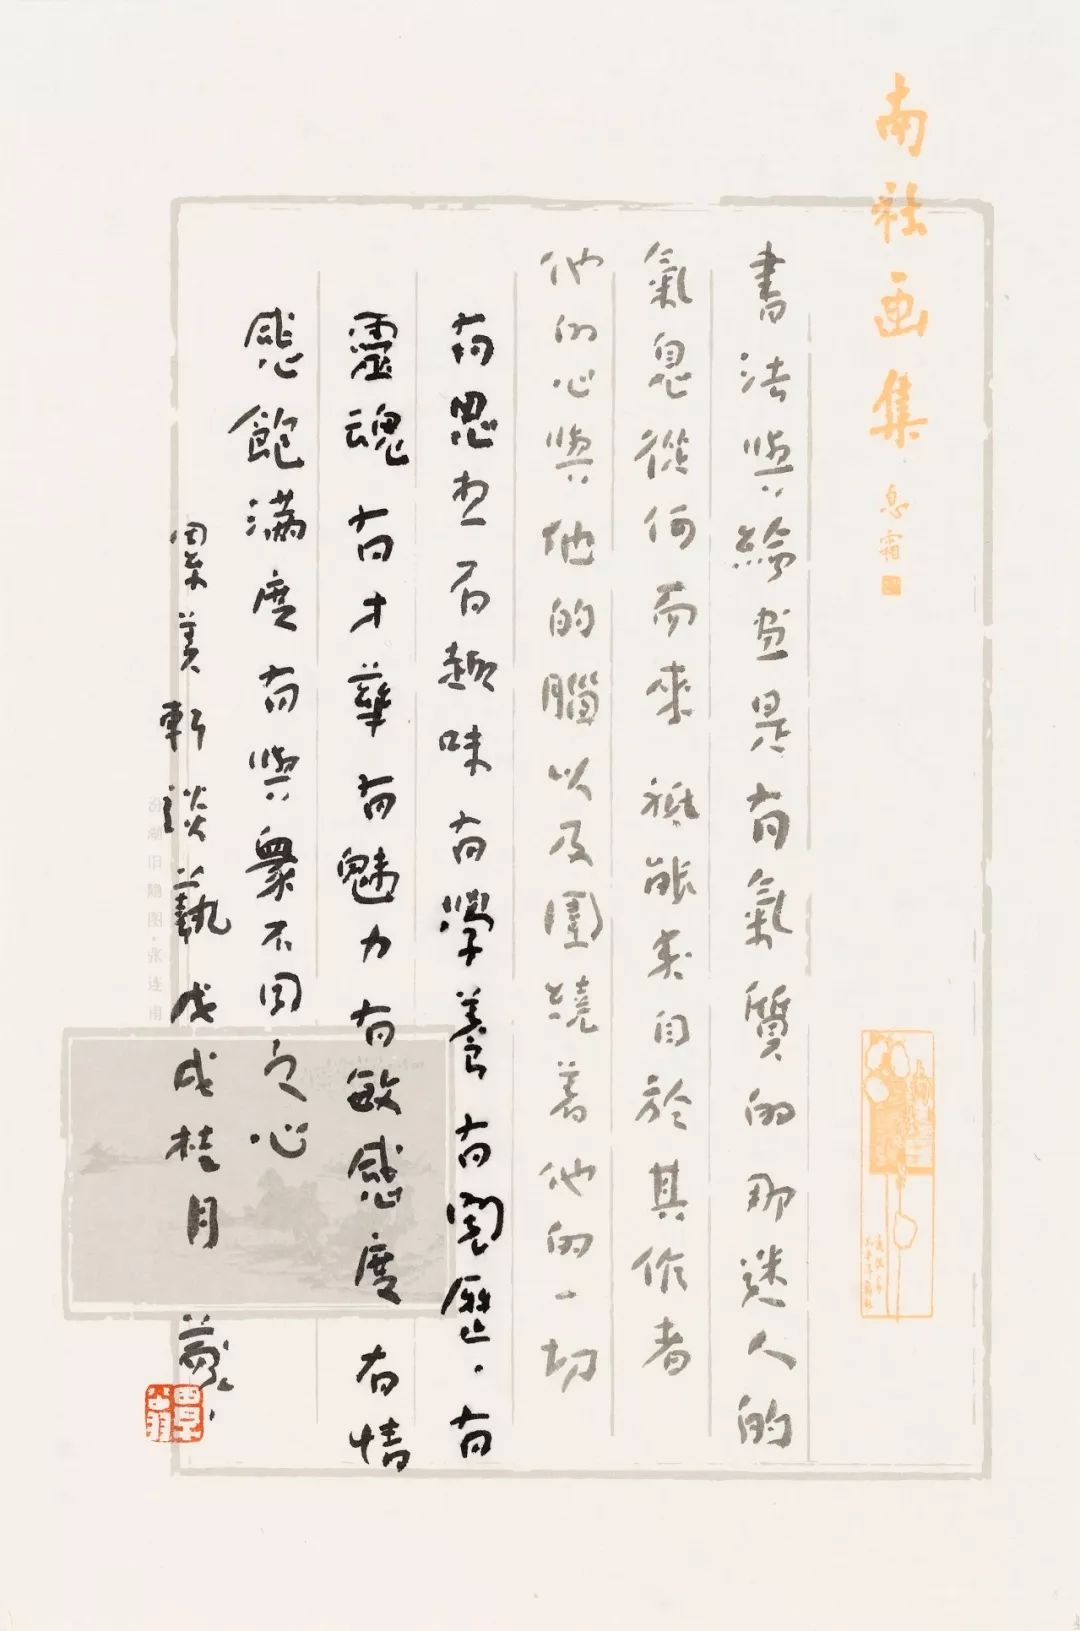 南社画集
息霜
書法與繪畫是有氣質的那迷人的
氣息從何而來 祗能來自於其作者
他的心與他的腦以及圍繞著他的一切
有思想有趣味有學養有閱歷有
靈魂有才華有魅力有敏感度有情
感飽滿度有與衆不同之心
累美軒談藝戊戌桂月